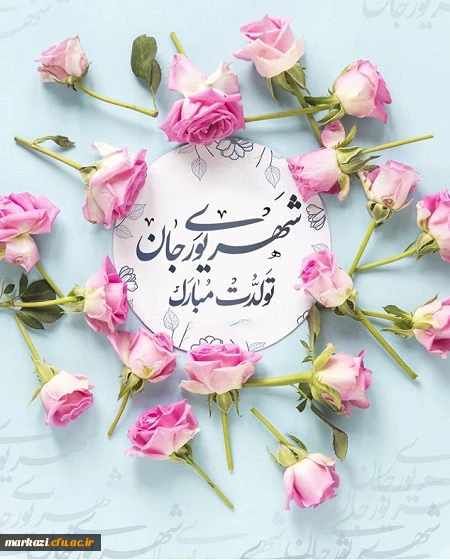 شهریوری جان
تولدت مبارک
markazi.cfu.ac.ir